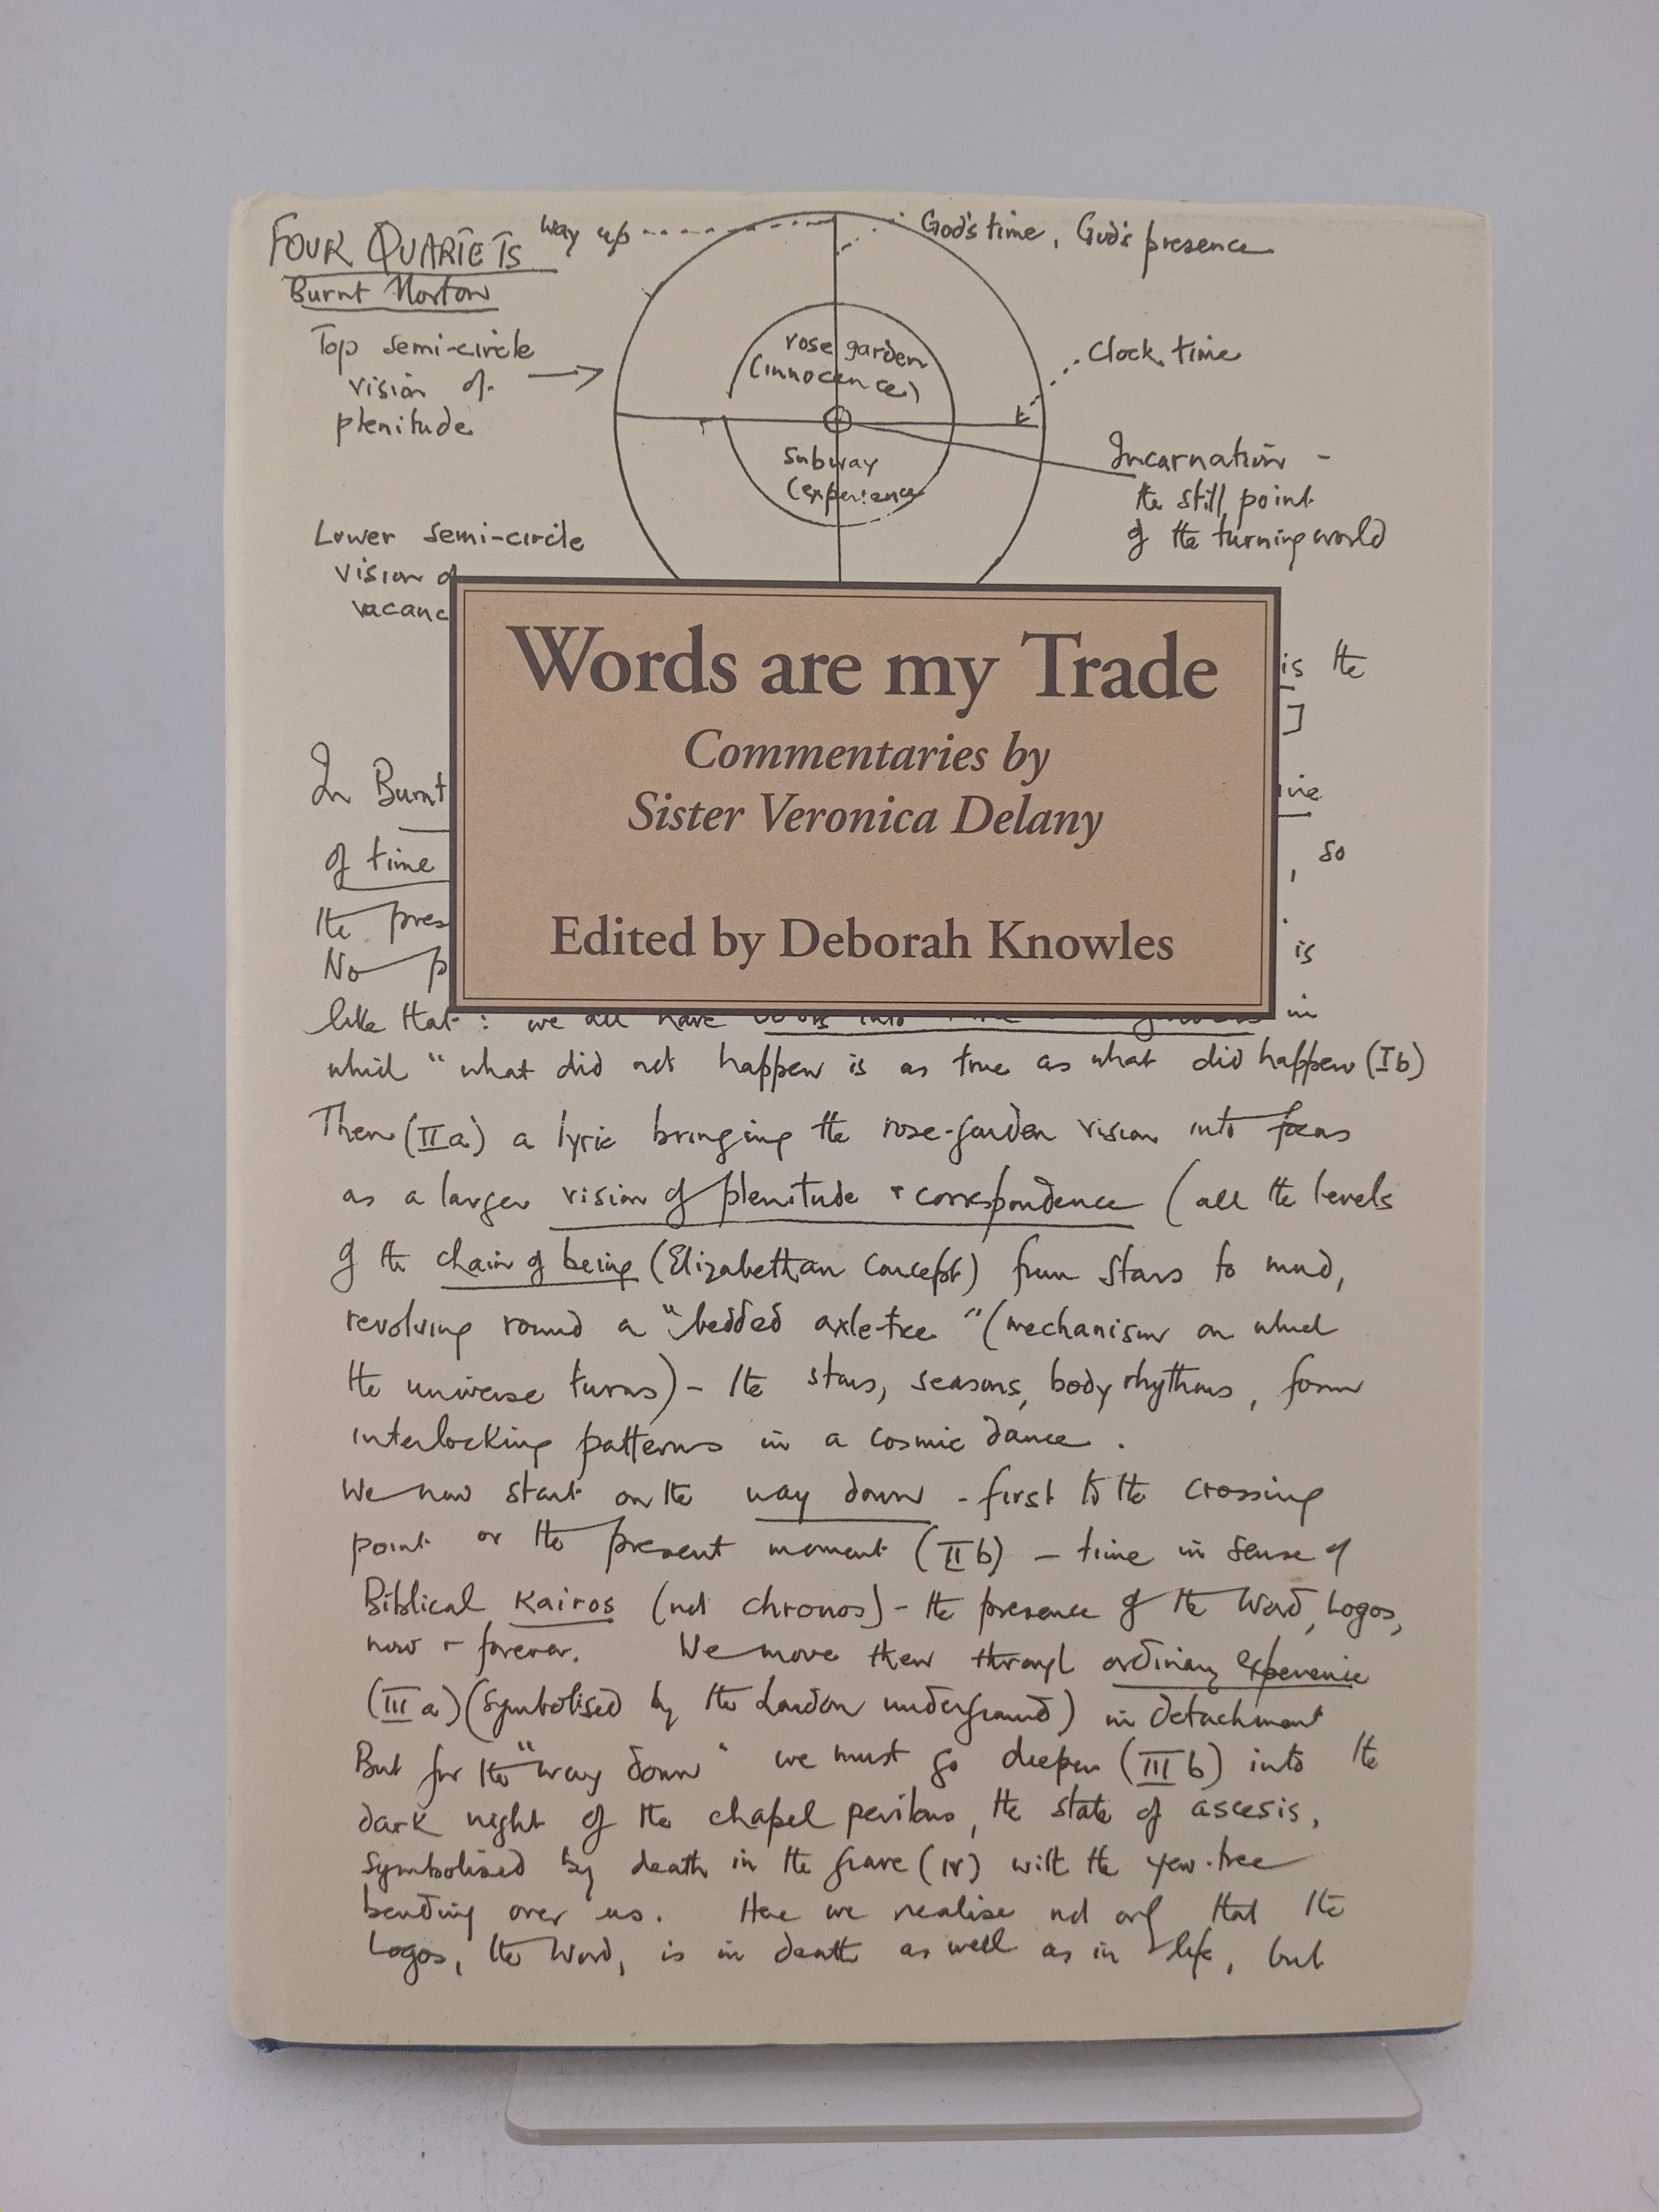 FOUR QUARTETS
Burnt Norton
way up
God's time, God's presence
Top semi-circle
vision of
plenitude
rose garden
(innocence)
Clock time
subway
(experience
Incarnation -
the still point
of the turning world
Lower semi-circle
vision of
vacanc
Words are my Trade
Commentaries by
Sister Veronica Delany
Edited by Deborah Knowles
is the
]
In Burnt
of time
, so
the pres
No p
is
like that: we all have in
which "what did not happen is as true as what did happen (Ib)
Then (IIa) a lyric bringing the rose-garden vision into focus
as a larger vision of plenitude + correspondence (all the levels
of the chain of being (Elizabethan concept) from stars to mud,
revolving round a "bedded axle-tree" (mechanism on which
the universe turns) - the stars, seasons, body rhythms, form
interlocking patterns in a cosmic dance.
We now start on the way down - first to the crossing
point or the present moment (IIb) - time in sense of
Biblical Kairos (not chronos) - the presence of the Word, Logos,
now + forever. We move then through ordinary experience
(IIIa) (symbolised by the London underground) in detachment
But for the "way down" we must go deeper (IIIb) into the
dark night of the chapel perilous, the state of ascesis,
symbolised by death in the grave (IV) with the yew-tree
bending over us. Here we realise not only that the
Logos, the Word, is in death as well as in life, but